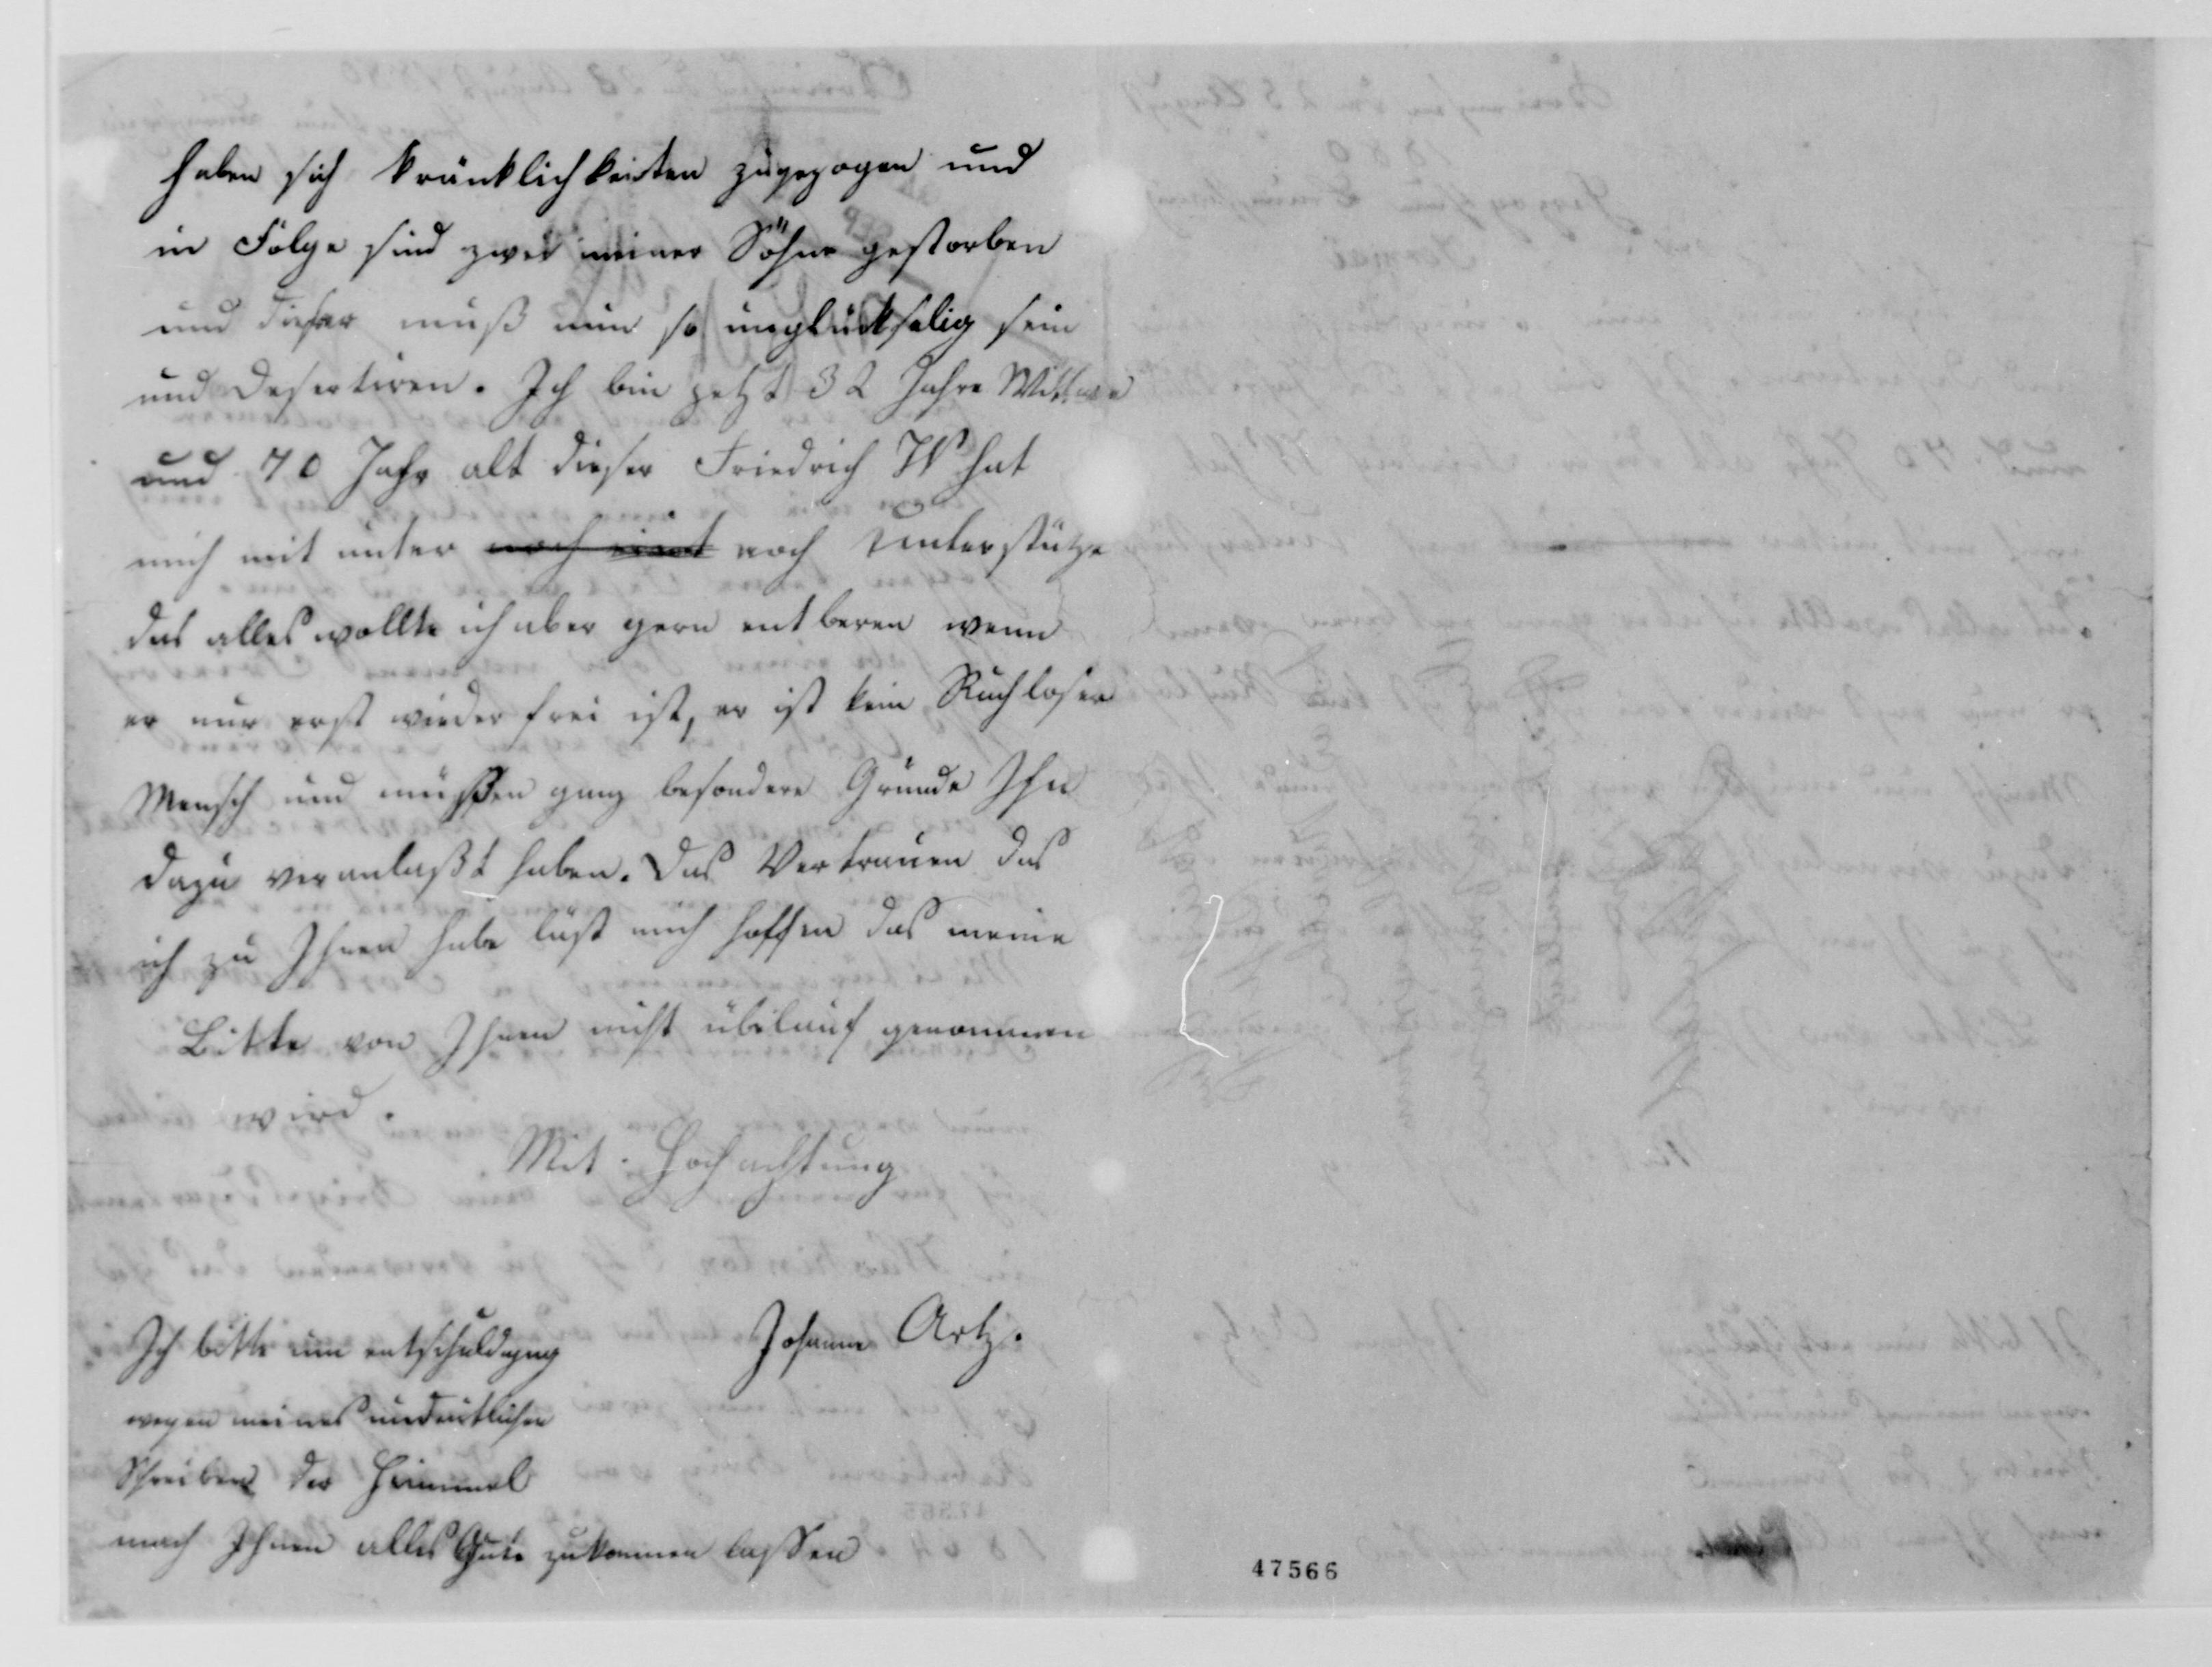 haben sich kränklichkeiten zugezogen und
in Folge sind zwei meiner Söhne gestorben
und dieser muß nun so unglückselig sein
und Desertiren. Ich bin jetzt 32 Jahre Wittwe
und 70 Jahr alt dieser Friedrich W hat
mich mit unter noch noch Unterstütze
das alles wollte ich aber gern entberen wenn
er nur erst wieder frei ist, er ist kein Ruchloser
Mensch und müßen ganz besondere Gründe Ihn
dazu veranlaßt haben. Das Vertrauen das
ich zu Ihnen habe läst mich hoffen das meine
Bitte von Ihnen nicht übelauf genommen
wird.
Mit Hochachtung
Johanne Artz.
Ich bitte um entschuldgung
wegen meines undeutlichen
Schreibens der Himmel
mach Ihnen alles Gute zukommen lassen
47566